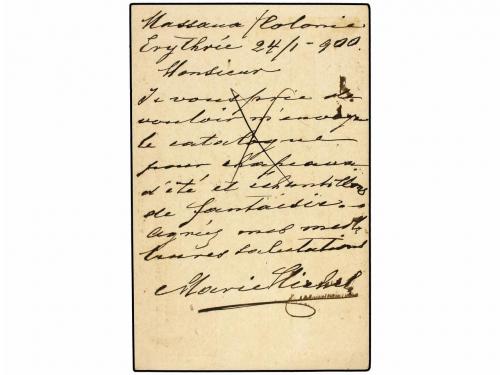 Massaua / Colonie
Erythrée 24/1-900.
Monsieur
Je vous prie de
vouloir m'envoyer
le catalogue
pour chapeaux
d'été et échantillons
de fantaisie.
agréez mes meil-
leures salutations
Marie